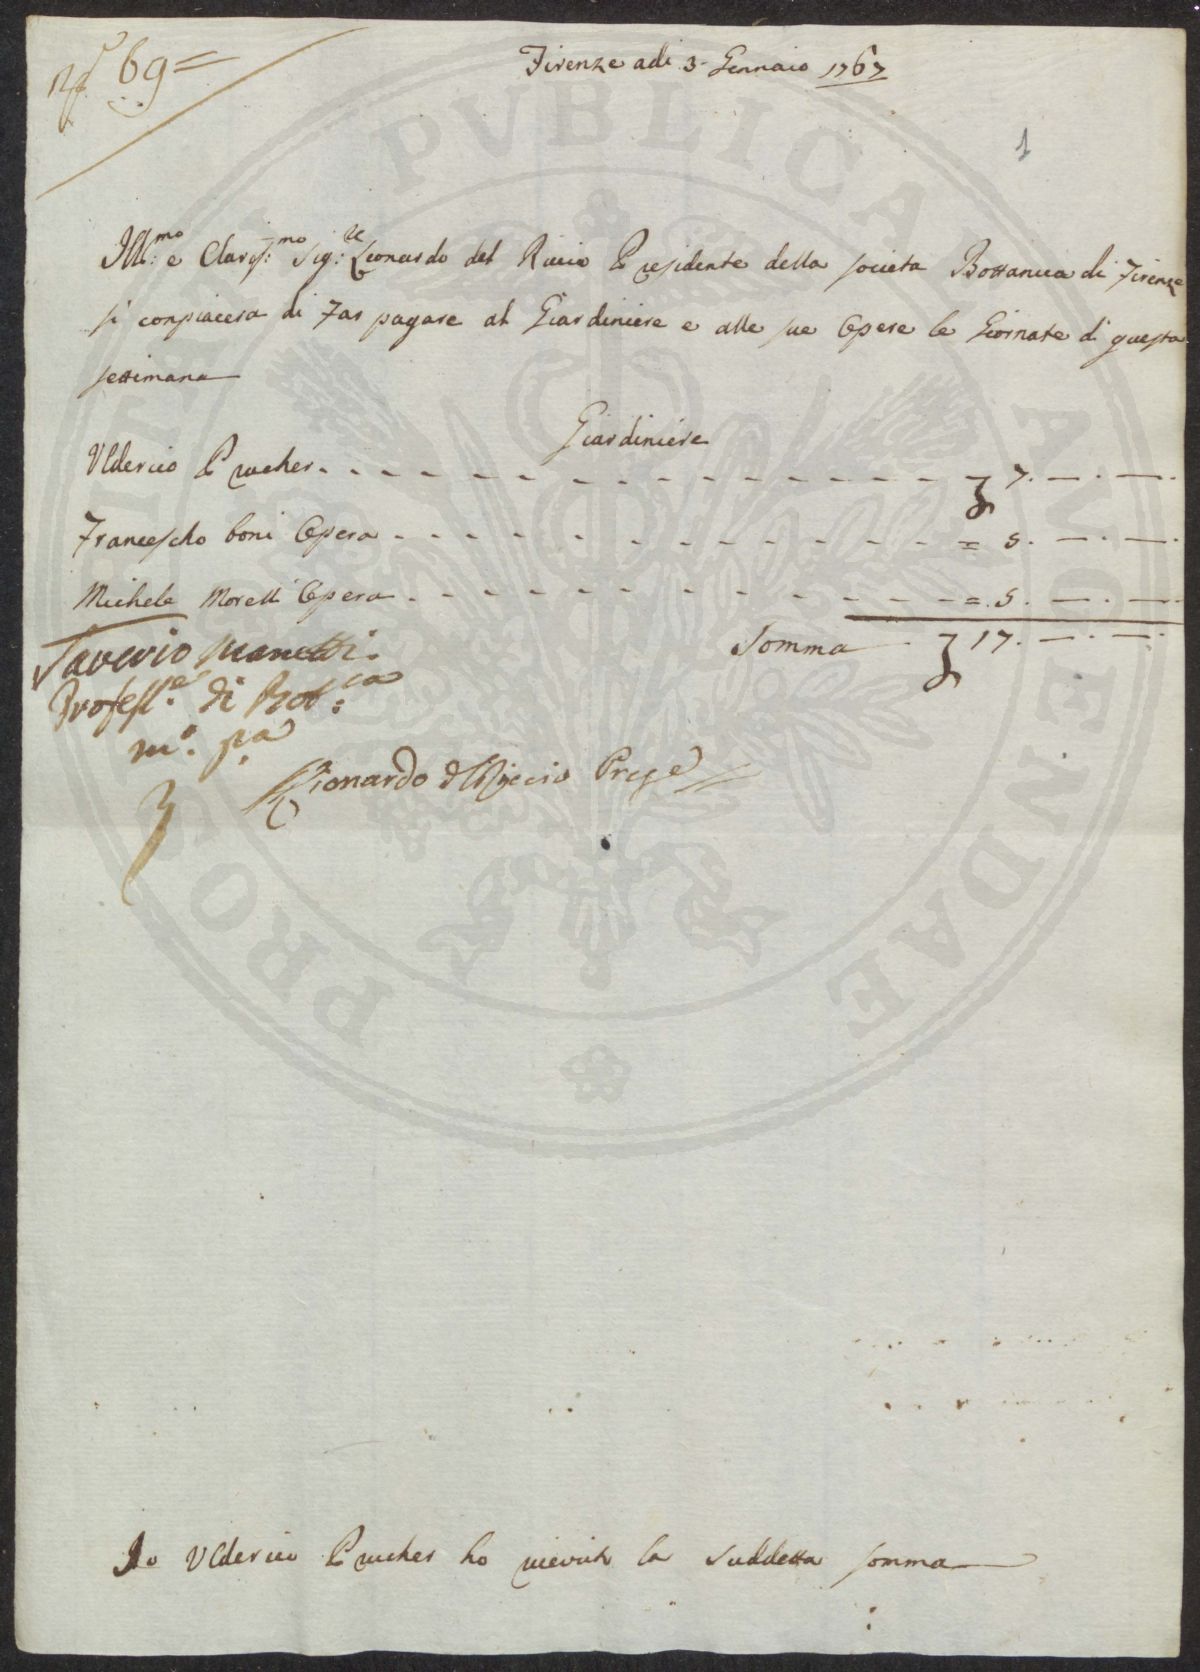 69=
Firenze adi 3 Gennaio 1767
1
Ill:mo e Clariss:mo Sig:re Lionardo del Riccio Presidente della societa Bottanica di Firenze
si conpiacera di Far pagare al Giardiniere e alle sue Opere le Giornate di questa
settimana
Giardiniere
Ulderico Prucher - - - 7. — . —.
Francescho Boni Opera - - - = 5. — . —.
Michele Morelli Opera - - - = 5. — . —.
Somma 17. — . —.
Saverio Manetti
Profess.re di Bot:ca
mo. pa
Lionardo del Riccio Preste
Io Ulderico Prucher ho ricevuto la suddetta somma
PROSPERITATI PVBLICAE AVGENDAE